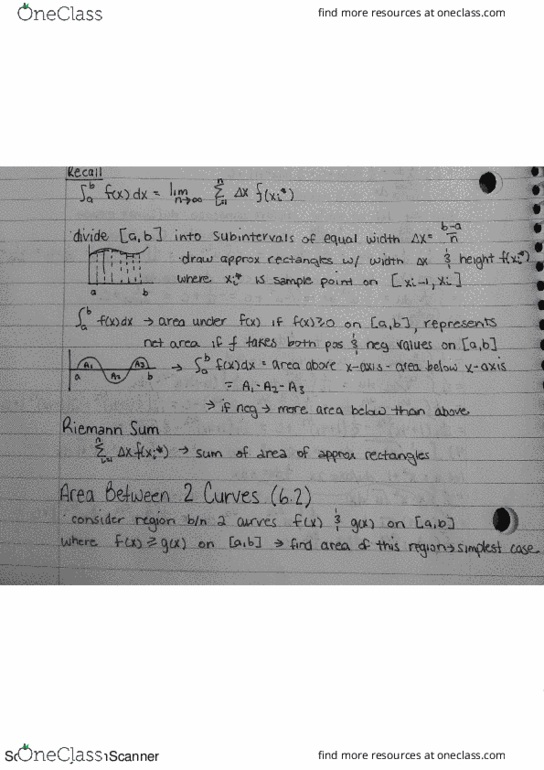 OneClass
find more resources at oneclass.com
Recall
∫ₐᵇ f(x) dx = lim n→∞ Σ i=1 n Δx f(xi*)
· divide [a,b] into subintervals of equal width Δx = b-a/n
· draw approx rectangles w/ width Δx & height f(xi*)
where xi* is sample point on [xi-1, xi]
a b
∫ₐᵇ f(x)dx → area under f(x) if f(x)≥0 on [a,b], represents
net area if f takes both pos & neg values on [a,b]
A₁ A₂ A₃ → ∫ₐᵇ f(x)dx = area above x-axis - area below x-axis
a b = A₁-A₂-A₃
→ if neg → more area below than above
Riemann Sum
Σ i=1 n Δx f(xi*) → sum of area of approx rectangles
Area Between 2 Curves (6.2)
· consider region b/n 2 curves f(x) & g(x) on [a,b]
where f(x) ≥ g(x) on [a,b] → find area of this region → simplest case
OneClass
Scanner
find more resources at oneclass.com